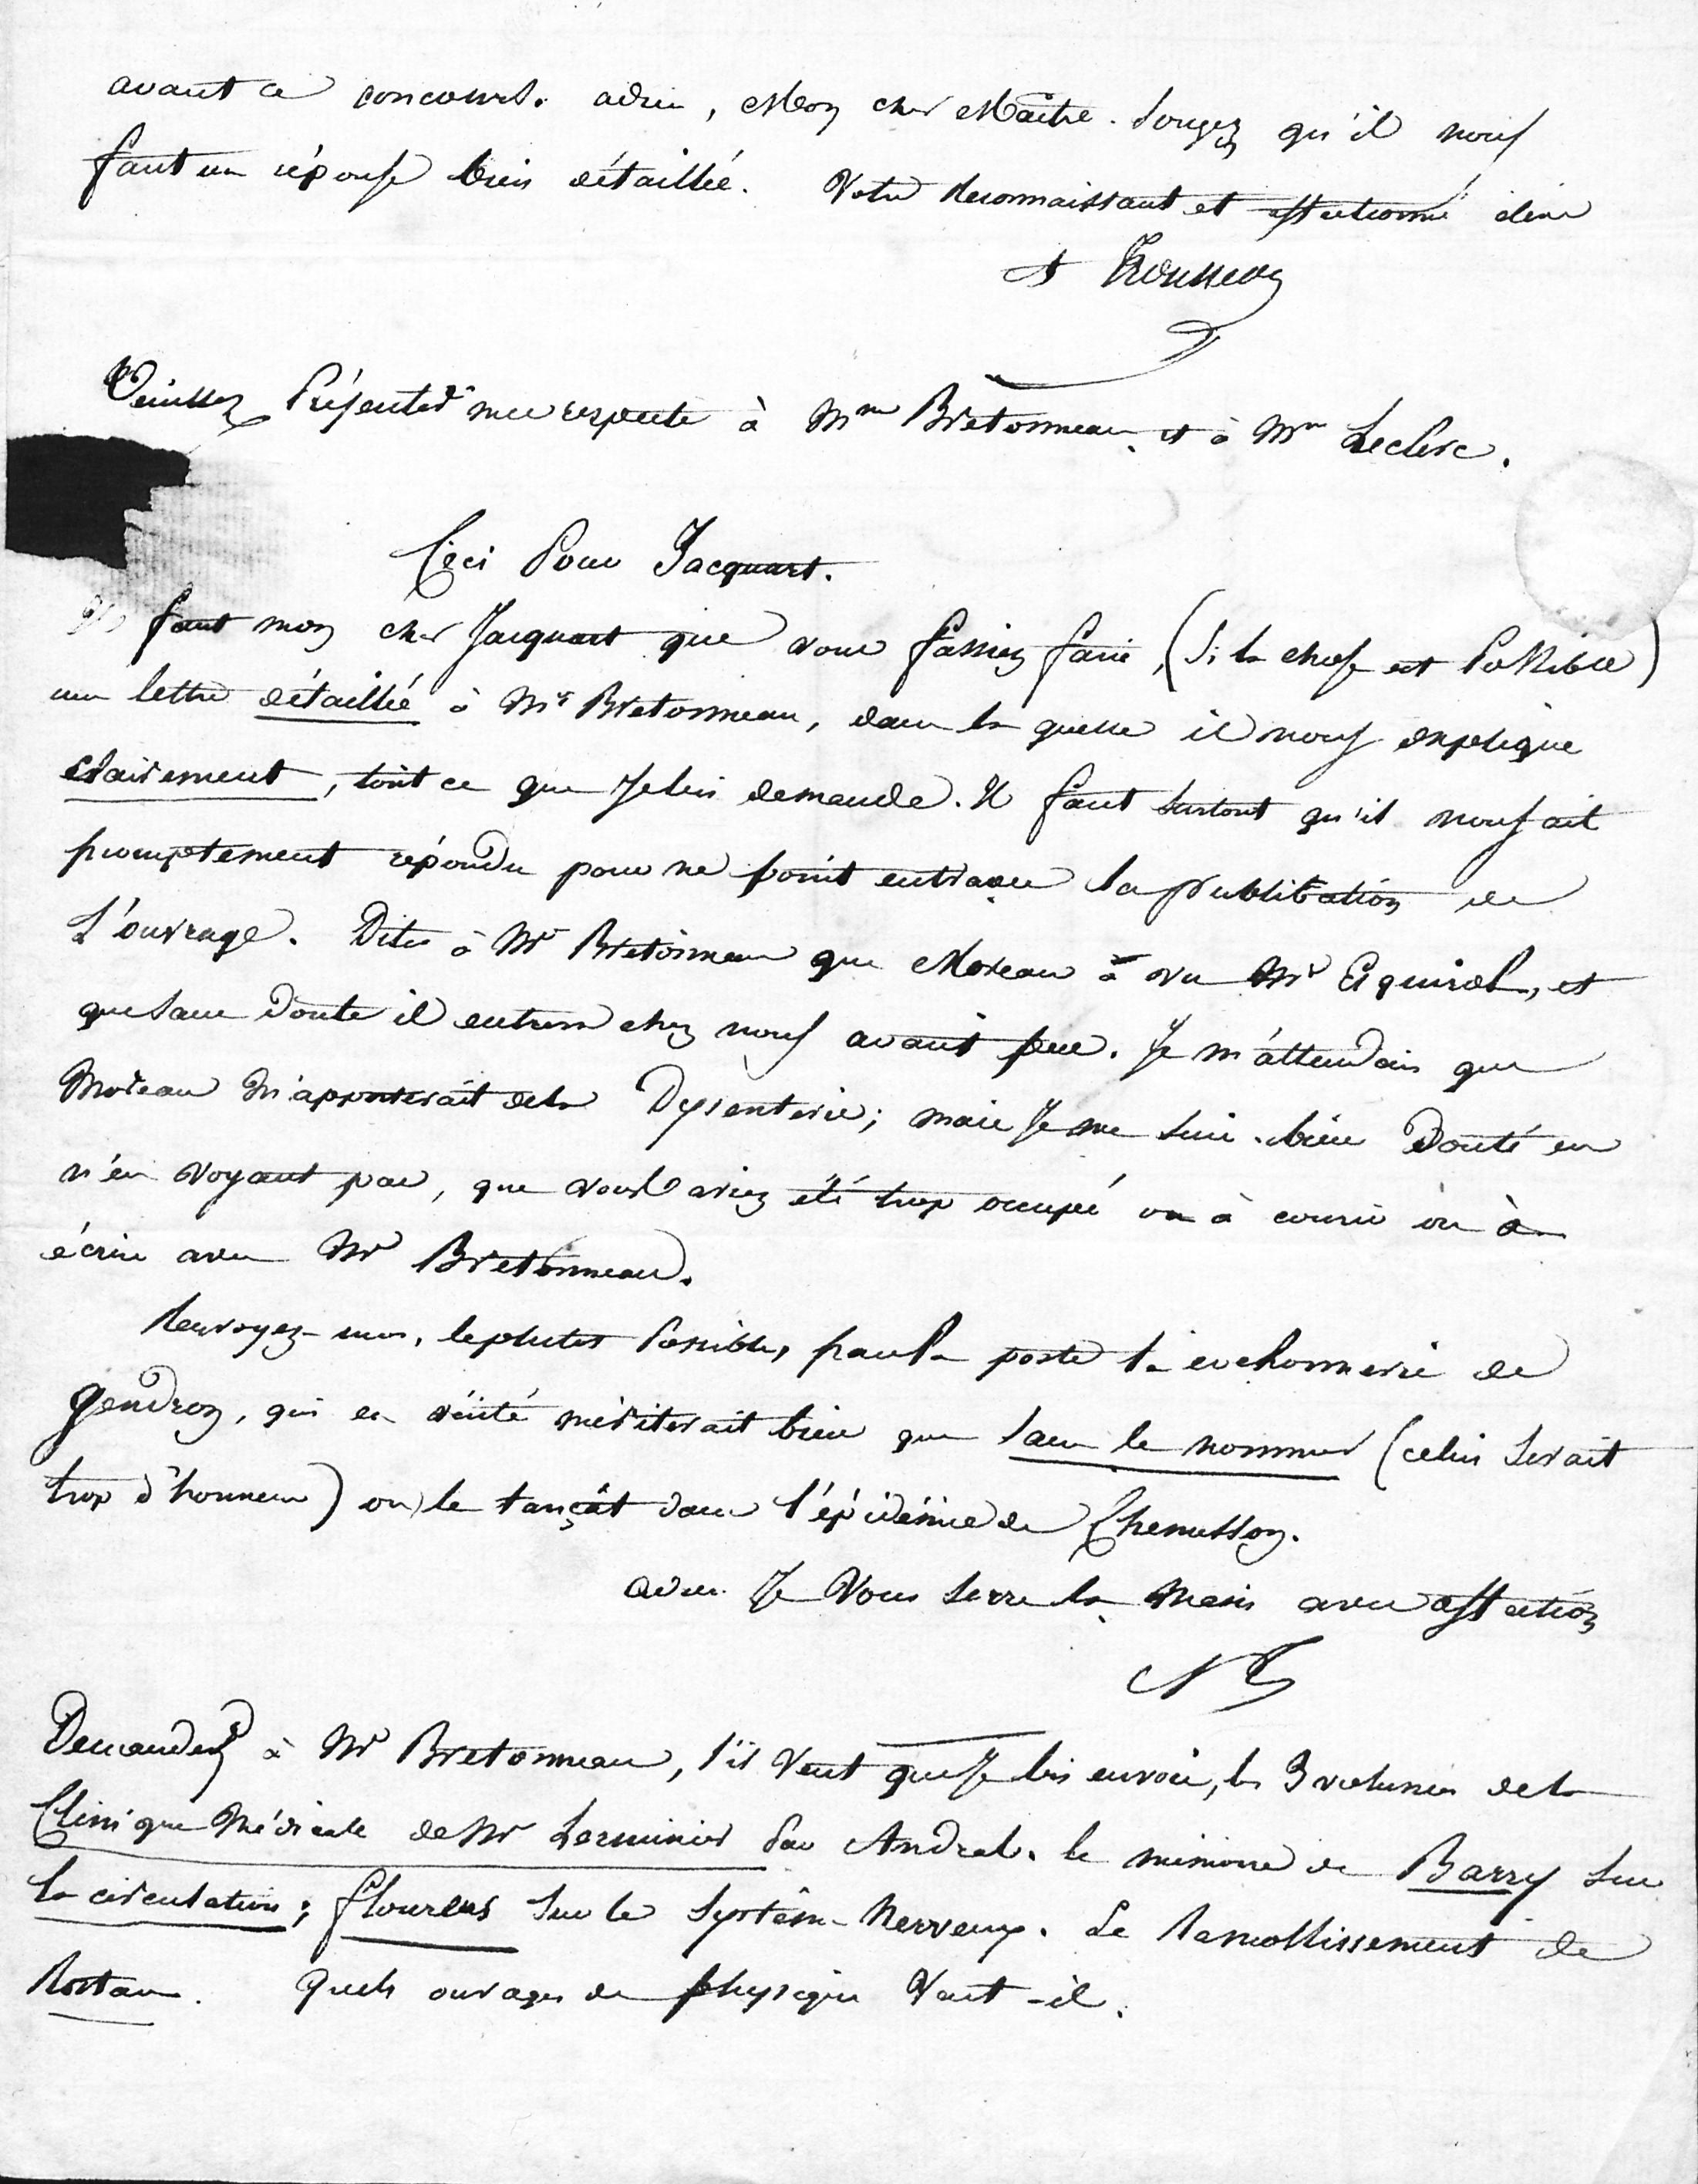 avant ce concours. adieu, Mon cher Maître. Songez qu'il nous
faut une réponse bien détaillée. Votre reconnaissant et affectionné élève
A Trousseau
Veuillez Présenter mes respects à Mme Bretonneau et à Mme Leclerc.
Ceci Pour Jacquart.
Il faut mon cher Jacquart que vous fassiez faire, (Si la chose est Possible)
une lettre détaillée à Mr Bretonneau, dans la quelle il nous explique
clairement, tout ce que Je lui demande. Il faut surtout qu'il nous ait
promptement répondu pour ne point entraver la publication de
L'ouvrage. Dites à Mr Bretonneau que Moreau a vu Mr Esquirol, et
que sans Doute il entrera chez nous avant peu. Je m'attendais que
Moreau m'apporterait de la Dysenterie; mais Je me suis bien Douté en
n'en voyant pas, que vous aviez été trop occupé ou à courir ou à
écrire avec Mr Bretonneau.
Renvoyez-moi, le plutot Possible, par la poste la cochonnerie de
Gendron, qui en vérité mériterait bien que sans le nommer (ce lui serait
trop d'honneur) on le tançât dans l'épidémie de Chenusson.
adieu. Je Vous serre la main avec affection
A T
Demandez à Mr Bretonneau, s'il Veut que Je lui envoie, les 3 volumes de la
Clinique Médicale de Mr Lerminier Par Andral. le mémoire de Barry sur
la circulation; flourens sur le système Nerveux. Le Ramollissement de
Rostan. Quels ouvrages de physique Veut-il.